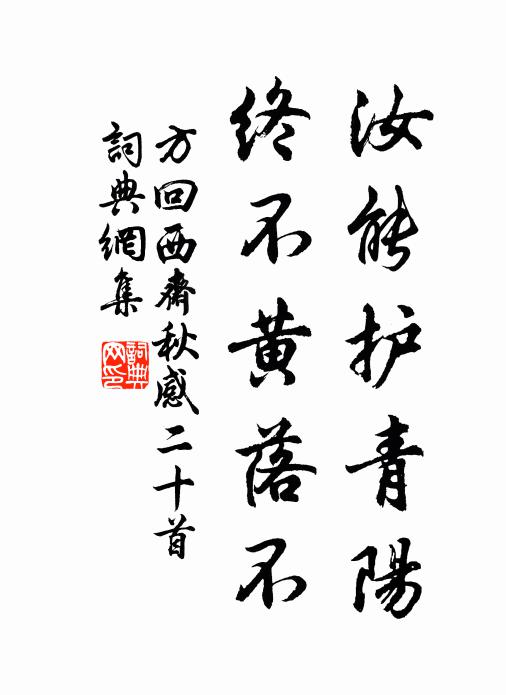 汝能护青陽
終不黄落不
方回西齋秋感二十首
詞典網集
詞典網印